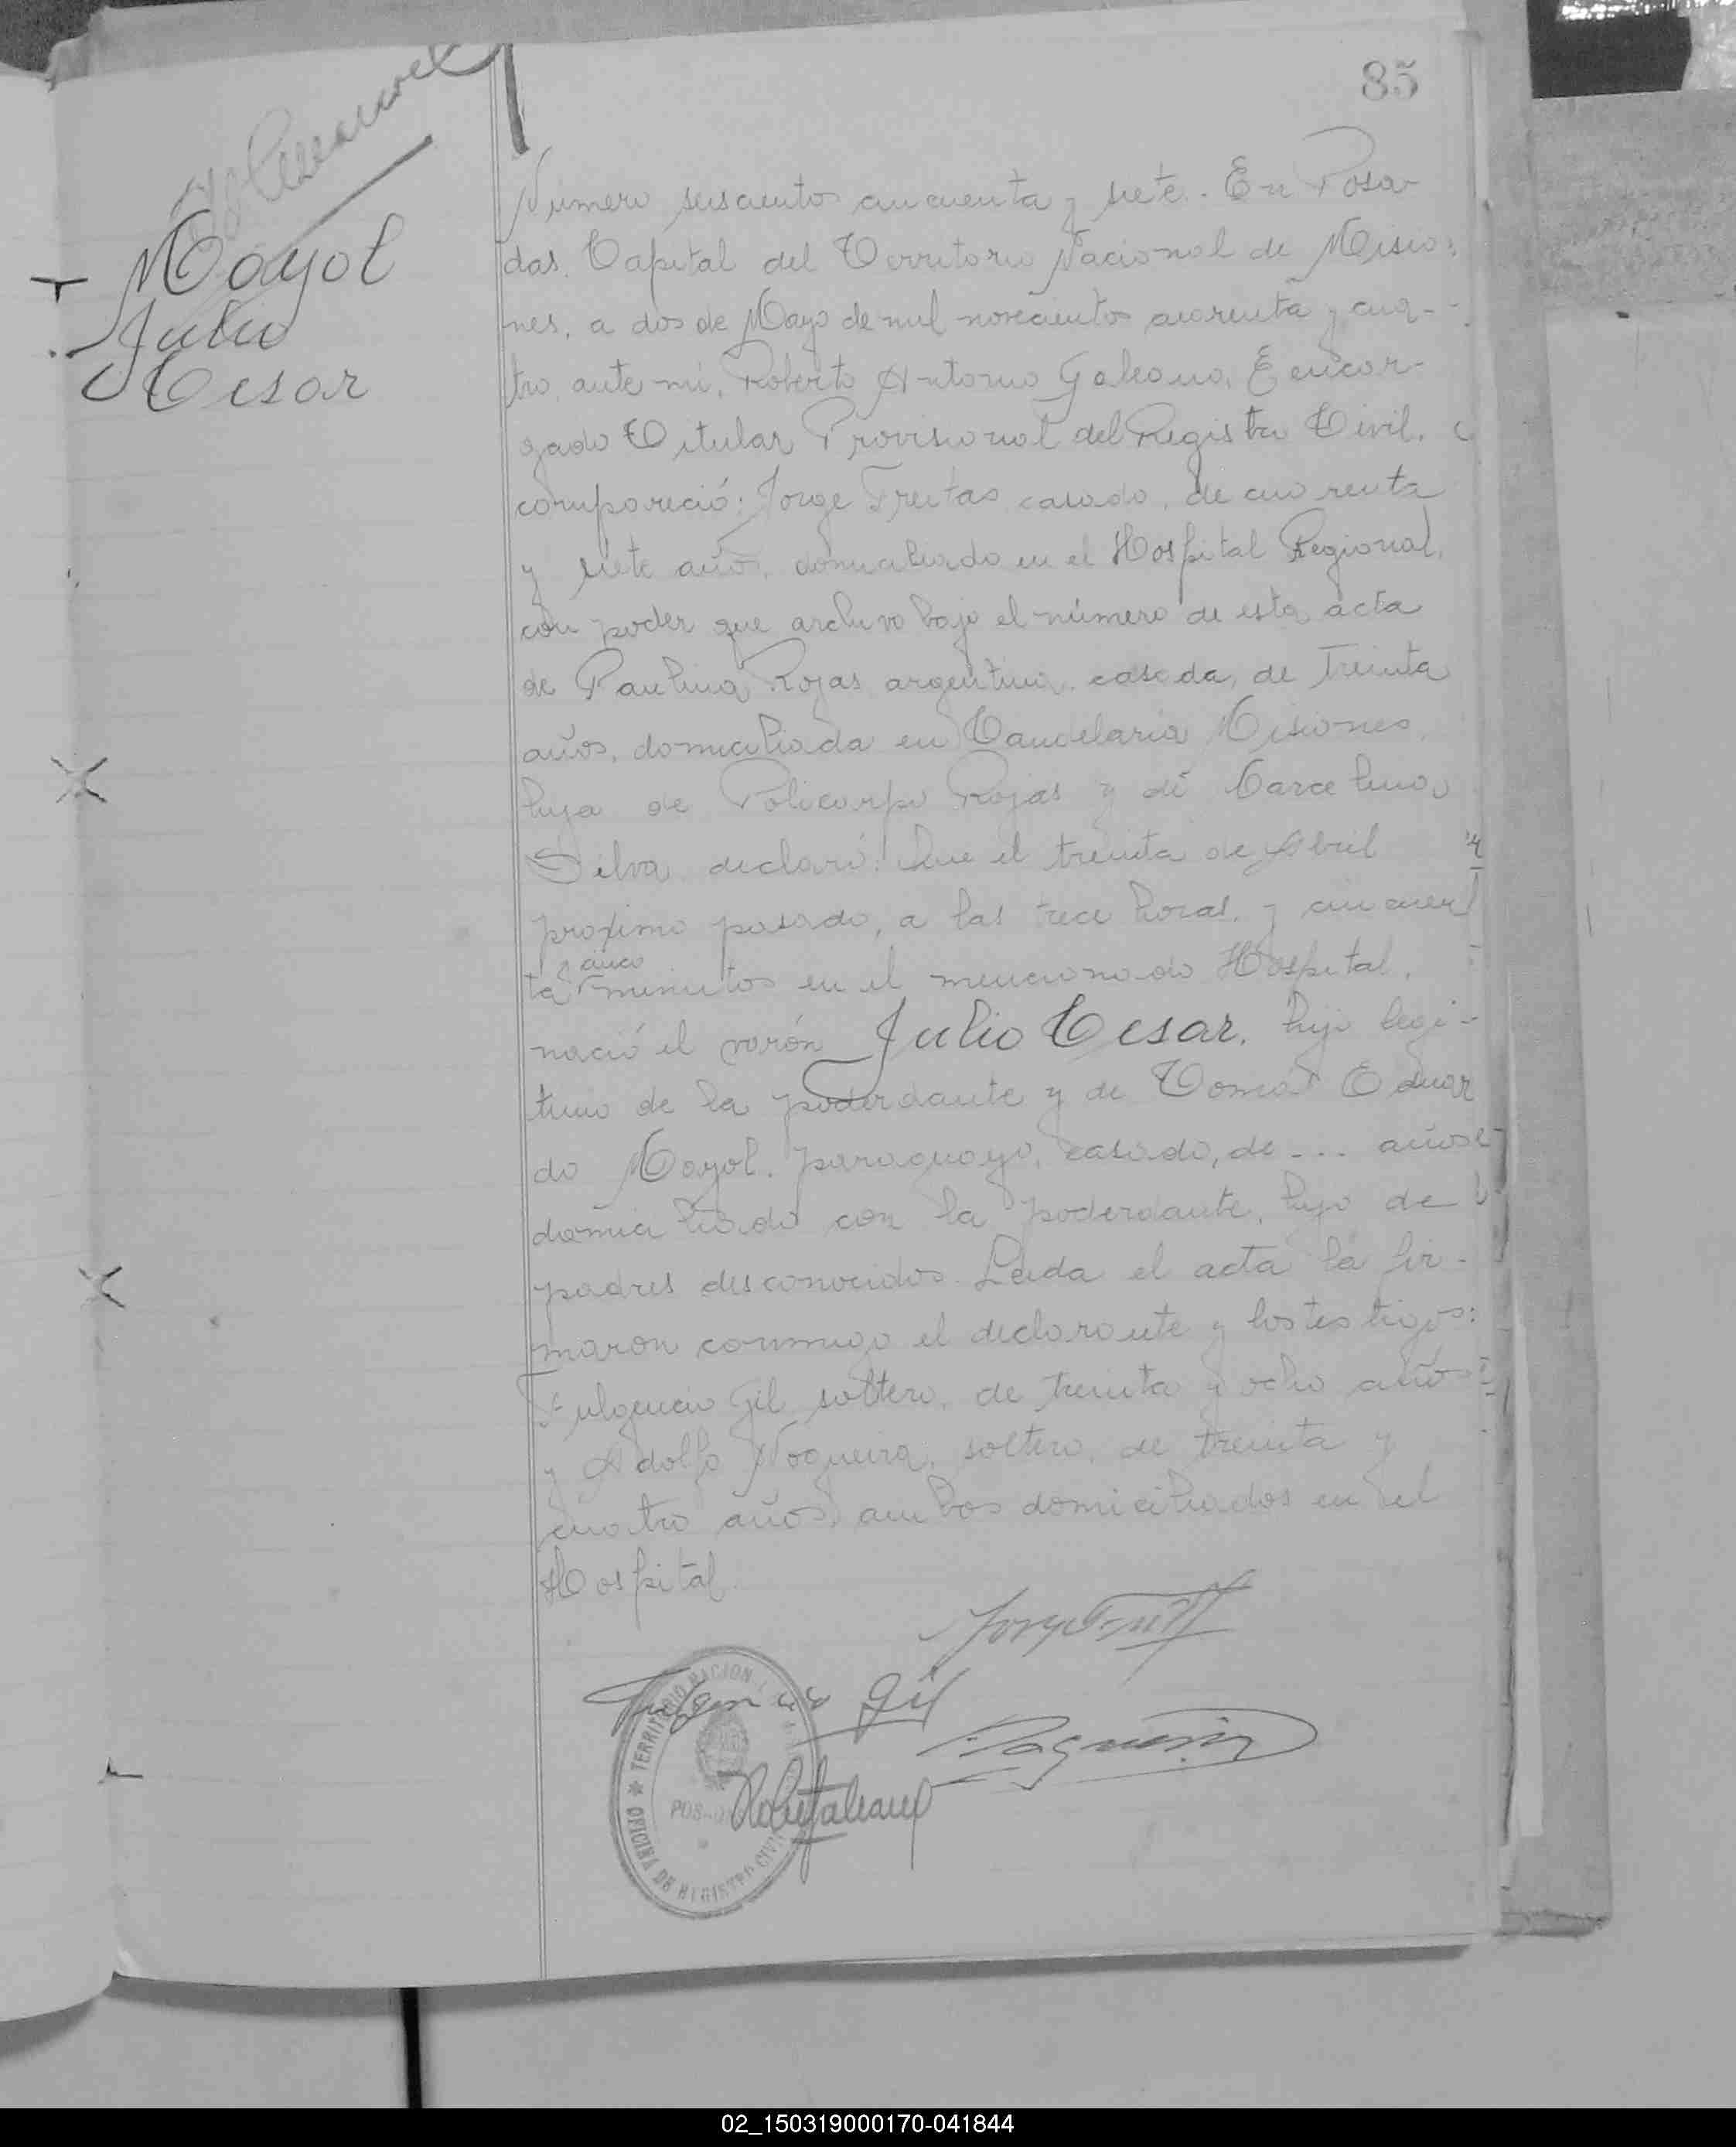 85
Mayol
Julio
Cesar
Número seiscientos cincuenta y siete. En Posa-
das, Capital del Territorio Nacional de Misio-
nes, a dos de Mayo de mil novecientos cuarenta y cua-
tro, ante mi, Roberto Antonio Galeano, Encar-
gado Titular Provisional del Registro Civil,
compareció: Jorge Freitas casado, de cuarenta
y siete años, domiciliado en el Hospital Regional,
con poder que archivo bajo el número de esta acta
de Paulina Rojas argentina, casada, de treinta
años, domiciliada en Candelaria Misiones,
hija de Policarpo Rojas y de Marcelina
Silva declaró: Que el treinta de Abril
proximo pasado, a las trece horas, y cincuen
y cinco
ta minutos en el mencionado Hospital,
nació el varón Julio Cesar, hijo legi-
timo de la poderdante y de Tomás Eduar
do Mayol, paraguayo, casado, de --- años
domiciliado con la poderdante, hijo de
padres desconocidos. Leida el acta la fir-
maron conmigo el declarante y los testigos:
Fulgencio Gil soltero, de treinta y ocho años
y Adolfo Nogueira, soltero, de treinta y
cuatro años, ambos domiciliados en el
Hospital.
Fulgencio Gil
Nogueira
OFICINA DE REGISTRO CIVIL * TERRITORIO NACIONAL
POSADAS
02_150319000170-041844